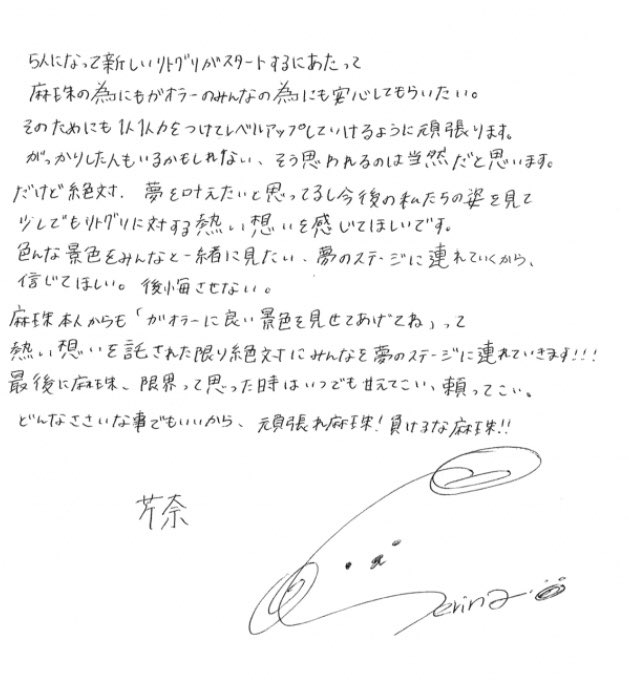 5人になって新しいリトグリがスタートするにあたって
麻珠の為にもガオラーのみんなの為にも安心してもらいたい。
そのためにも1人1人力をつけてレベルアップしていけるように頑張ります。
がっかりした人もいるかもしれない、そう思われるのは当然だと思います。
だけど絶対、夢を叶えたいと思ってるし今後の私たちの姿を見て
少しでもリトグリに対する熱い想いを感じてほしいです。
色んな景色をみんなと一緒に見たい、夢のステージに連れていくから、
信じてほしい。後悔させない。
麻珠本人からも「ガオラーに良い景色を見せてあげてね」って
熱い想いを託された限り絶対にみんなを夢のステージに連れていきます!!!
最後に麻珠、限界って思った時はいつでも甘えてこい、頼ってこい。
どんなささいな事でもいいから、頑張れ麻珠!負けるな麻珠!!
芹奈
Serina